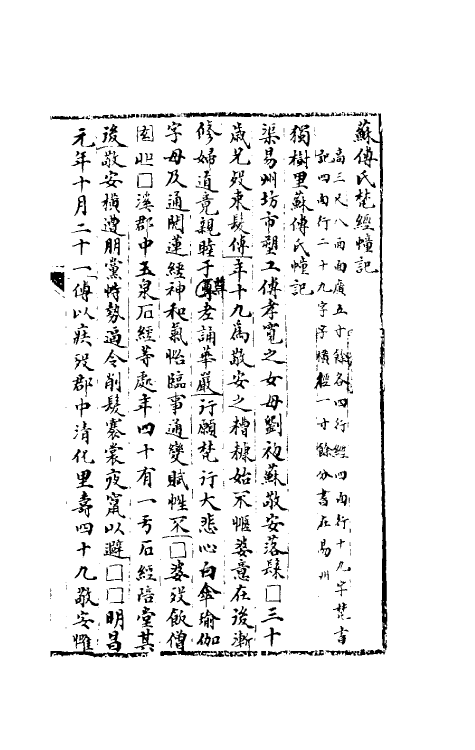 蘇傅氏梵經幢記
高三尺八面面廣五寸餘各四行經四面行十九字梵書
記四面行二十九字字順經一寸餘分書在易州
獨樹里蘇傅氏幢記
渠易州坊市塑工傅孝寬之女母劉初蘇敬安落肆□三十
歲兄歿束髮傅年十九為敬安之糟糠始不愜婆意在後漸
修婦道竟親睦于尊老誦華嚴行願梵行大悲心白傘瑜伽
字母及通閒蓮經神和氣怡臨事通變賦性不□婆歿飯僧
園㸃□溪郡中玉泉石經等處年四十有一亐石經陪堂其
後敬安橫遭朋黨恃勢逼令削髮褰裳夜竄以避□□明昌
元年十月二十一傅以疾歿郡中清化里壽四十九敬安惟